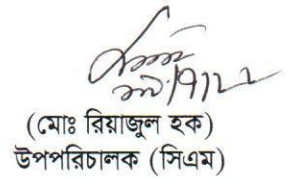 (মোঃ রিয়াজুল হক)
উপপরিচালক (সিএম)